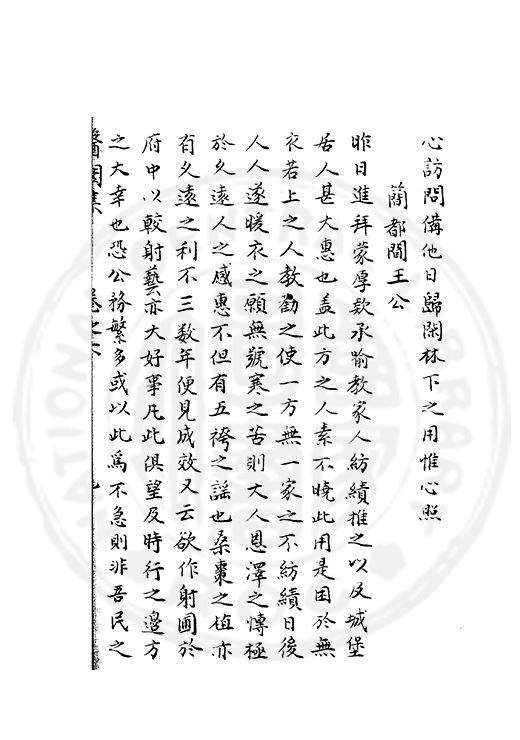 心訪問俻他日歸閑林下之用惟心照
蕳都閫王公
昨日進拜蒙厚欵承喻教家人紡績推之以及城堡
居人甚大惠也盖此方之人素不曉此用是困於無
衣若上之人教勸之使一方無一家之不紡績日後
人人遂暖衣之願無號寒之苦則大人恩澤之慱極
於久遠人之感惠不但有五袴之謡也桑棗之植亦
有久遠之利不三數年便見成效又云欲作射圃於
府中以較射藝亦大好事凡此俱望及時行之邉方
之大幸也恐公務繁多或以此爲不急則非吾民之
醫閭集 卷之六 九